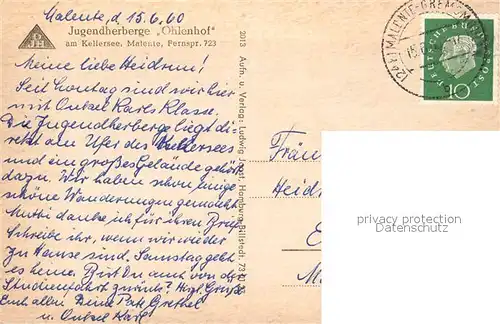 Malente, d 15.6.60
Jugendherberge „Ohlenhof"
am Kellersee, Malente, Fernspr. 723
DJH
Meine liebe Heidrun!
Seit Sonntag sind wir hier
mit Onkel Karls Klasse.
Die Jugendherberge liegt di-
rekt am Ufer des Kellersees
und ein großes Gelände gehört
dazu. Wir haben schon einige
schöne Wanderungen gemacht.
Mutti danke ich für ihren Brief.
Schreibe ihr, wenn wir wieder
zu Hause sind, Samstag geht
es heim. Bist Du auch von der
Studienfahrt zurück? Herzl. Grüße
Euch allen Deine Pat. Grethel
u. Onkel Karl
2013 Aufn. u. Verlag: Ludwig Jagst, Hamburg-Billstedt, 73
(24b) MALENTE-GREMSM
15.6
DEUTSCHE BUNDESPOST
10
Fräu
Heidr
privacy protection
(Datenschutz)